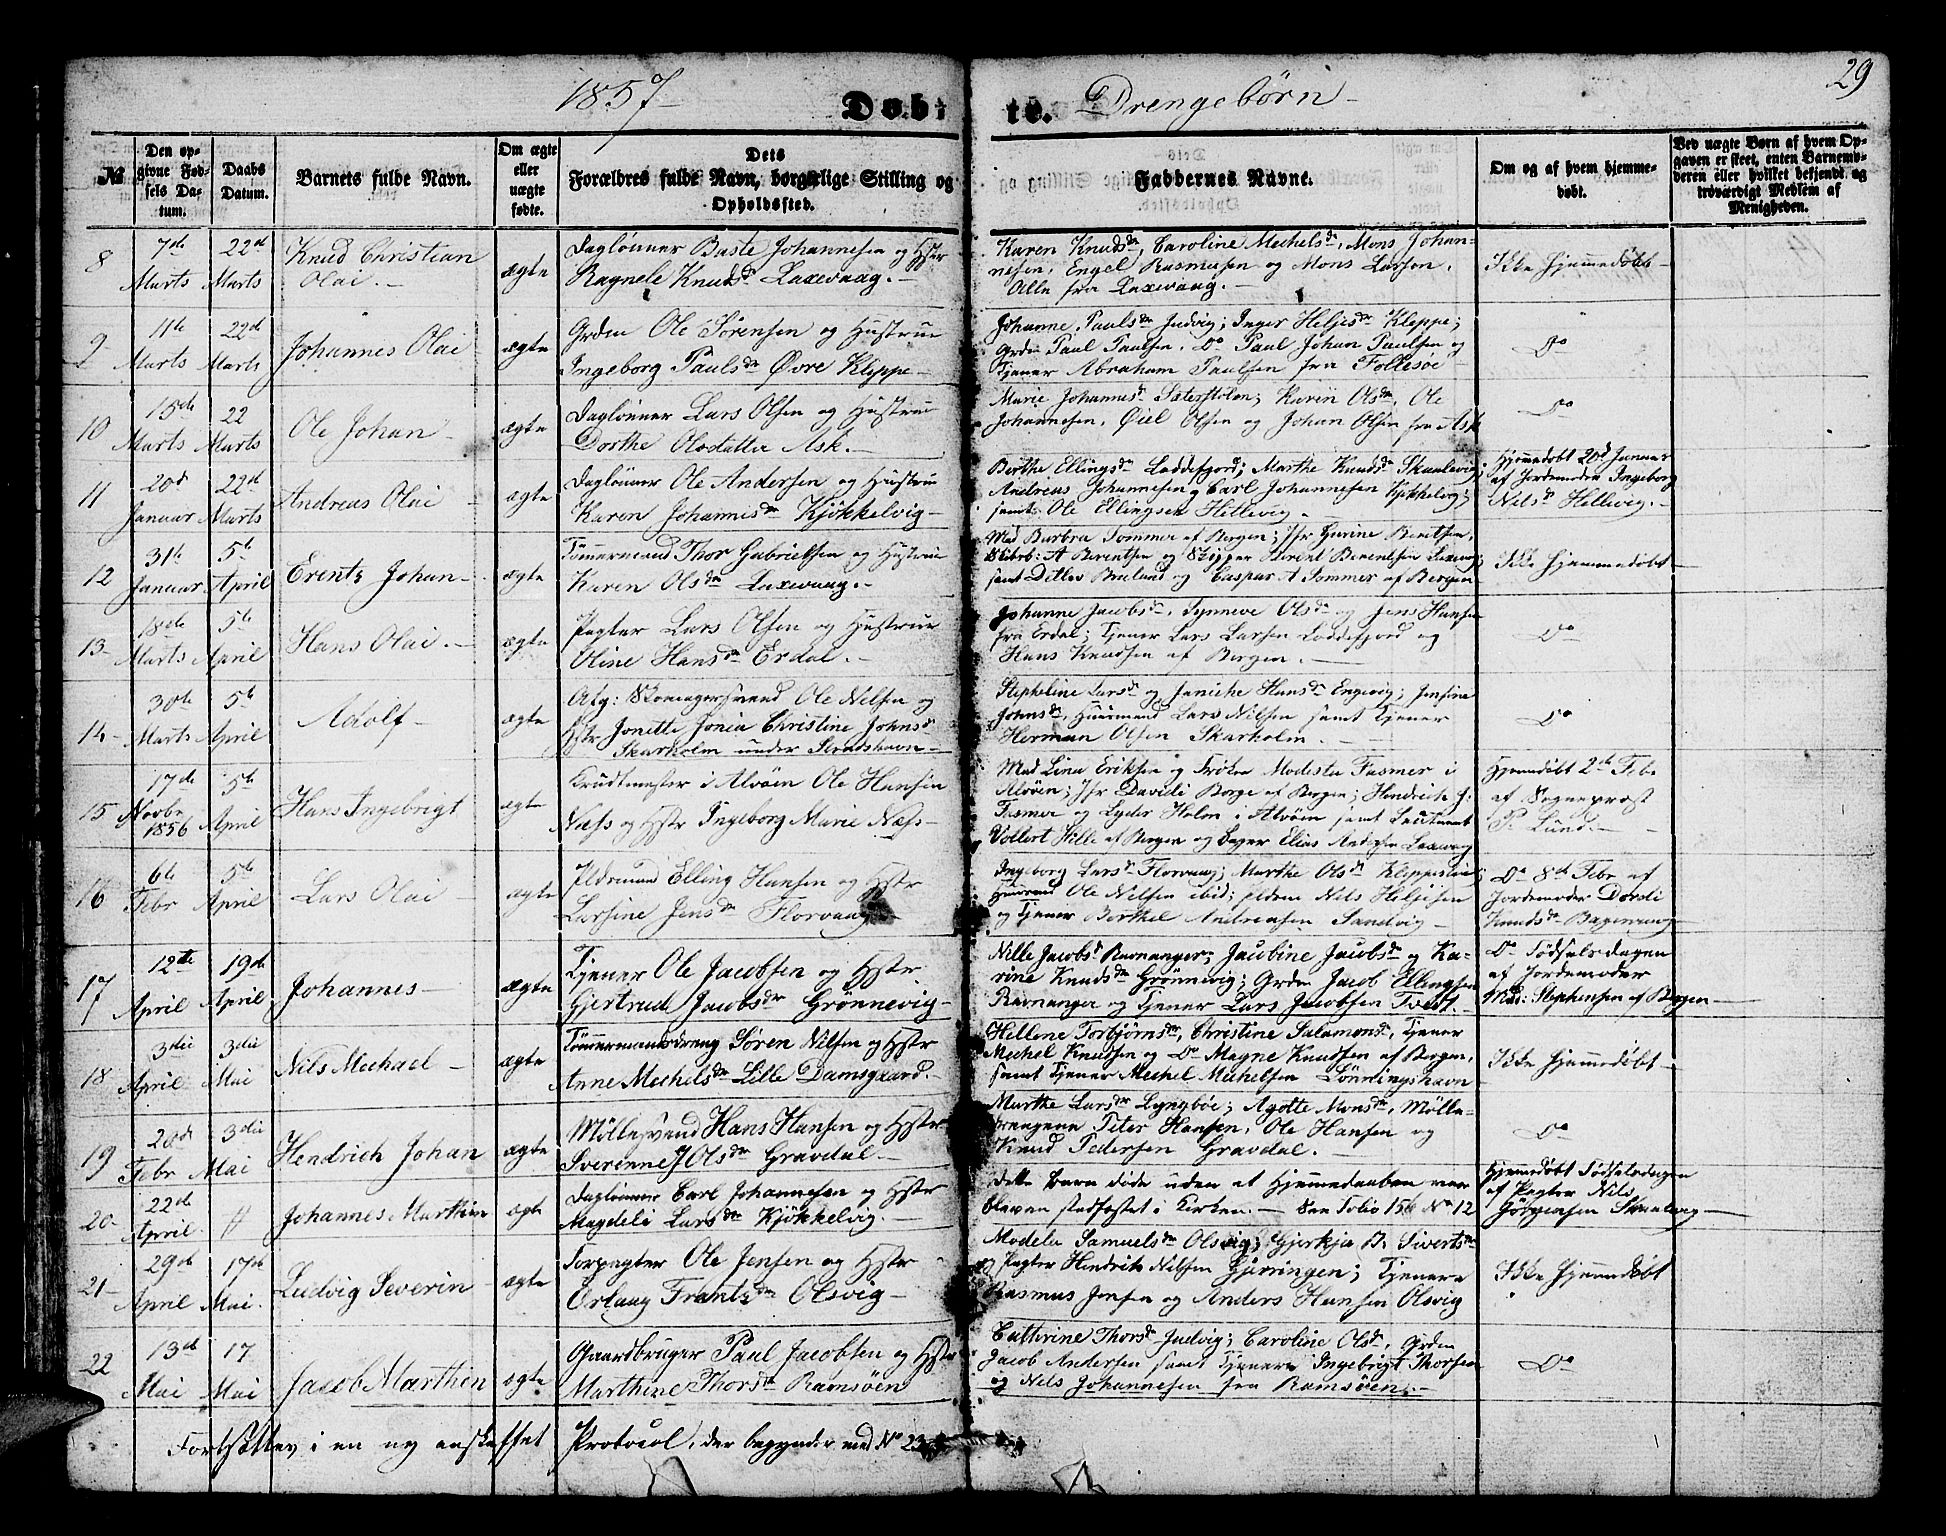 1857
Døb-
te. Drengebørn
29
No
Den opgivne Fødsels Datum.
Daabs Datum.
Barnets fulde Navn.
Om ægte eller uægte fødte.
Dets Forældres fulde Navn, borgerlige Stilling og Opholdssted.
Faddernes Navne.
Om og af hvem hjemmedøbt.
Ved uægte Børn af hvem Opgaven er skeet, enten Barnemoderen eller hvilket bekjendt og troværdigt Medlem af Menigheden.
8 7de Marts 22de Marts Knud Christian Olai. ægte
Daglønner Baste Johannesen og Hstr
Ragnele Knudsd. Laxevaag.
Karen Knudsdr, Caroline Mechelsdr, Mons Johan-
nesen, Engel Rasmusen og Mons Larsen.
Alle fra Laxevaag.
Ikke hjemmedøbt
9 11te Marts 22d Marts Johannes Olai ægte
Grdm Ole Sørensen og Hustrue
Ingeborg Paulsdr Øvre Kleppe
Johanne Paulsdr Judvig; Inger Heljesdr Kleppe;
Grdm Paul Paulsen, Do Paul Johan Paulsen og
Tjener Abraham Paulsen fra Follesøe
Do
10 15de Marts 22 Marts Ole Johan ægte
Daglønner Lars Olsen og Hustrue
Dorthe Olsdatter Ask.
Marie Johannesd. Sæterstølen; Karen Olsdr, Ole
Johannesen, Øiel Olsen og Johan Olsen fra Ask
Do
11 20d Januar 22d Marts Andreas Olai ægte
Daglønner Ole Andersen og Hustrue
Karen Johannesdr Kjøkkelvig
Berthe Ellingsdr Loddefjord; Marthe Knudsdr Skaalevig;
Andreas Johannesen og Carl Johannesen Kjøkkelvig;
samt Ole Ellingsen Hillevig.
Hjemmedøbt 20d Januar
af Jordemoder Ingeborg
Nilsdr Hellevig.
12 31te Januar 5te April Erentz Johan ægte
Tømmermand Thor Gabrielsen og Hustrue
Karen Olsdr Laxevaag.
Mad Barbra Sommer af Bergen; Jfr Gurine Berentsen,
Skibsb: A Berentsen og Skipper Berent Berentsen Laxevaag
samt Ditlev Breland og Caspar A Sommer af Bergen
Ikke hjemmedøbt
13 18de Marts 5te April Hans Olai. ægte
Pagter Lars Olsen og Hustrue
Oline Hansdr Erdal.
Johanne Jacobsdr, Synneve Olsdr og Jens Hansen
fra Erdal; Tjener Lars Larsen Loddefjord og
Hans Knudsen af Bergen.
Do
14 30te Marts 5te April Adolf ægte
Afg: Skomagersvend Ole Nilsen og
Hstr Jonette Jonea Christine Johnsd
Skarholm under Strudshavn
Stepheline Larsdr og Janiche Hansdr Engevig; Jensine
Johnsdr, Huusmand Lars Nilsen samt Tjener
Herman Olsen Skarholm.
Do
15 17de Novbr 1856 5te April Hans Ingebrigt ægte
Krudtmester i Alvøen Ole Hansen
Næss og Hstr Ingeborg Marie Næss
Mad Lina Eriksen og Frøken Modesta Fasmer i
Alvøen; Jfr Davidi Borge af Bergen; Hendrich J:
Fasmer og Lyder Holm i Alvøen samt Lieutenant
Vollert Hille af Bergen og Bager Elias Andersen Laxevaag
Hjemmedøbt 2de Febr
af Sognepræst
P. Lund.
16 6te Febr 5te April Lars Olai ægte
Ældremand Elling Hansen og Hstr
Larsine Jensdr Florvaag
Ingeborg Larsd. Florvaag; Marthe Olsdr Kleppestøe;
Huusmd Ole Nilsen ibid; Nils Heljesen
og Tjener Berthel Andreasen Sandvig
Do 8de Febr af
Jordemoder Dordi
Knudsdr
17 12te April 19de April Johannes ægte
Tjener Ole Jacobsen og Hstr
Gjertrud Jacobsdr Grønnevig
Nille Jacobsd Ravnanger; Jacobine Jacobsdr og Ka-
rine Knudsdr Grønnevig; Grdm Jacob Ellingsen
Ravnanger og Tjener Lars Jacobsen Tveit.
Do Fødselsdagen
af Jordemoder
Mad: Stephensen af Bergen
18 3die April 3die Mai Nils Mechael ægte
Tømmermandsdreng Søren Nilsen og Hstr
Anne Mechelsdr Lille Damsgaard.
Hellene Torbjørnsdr, Christine Salamonsd, Tjener
Mechel Knudsen og Do Magne Knudsen af Bergen,
samt Tjener Mechel Michelsen Lønningshavn
Ikke hjemmedøbt
19 20d Febr 3die Mai Hendrich Johan ægte
Møllesvend Hans Hansen og Hstr
Sverenne J Olsdr Gravdal.
Marthe Larsdr Lyngbøe; Agotte Monsdr, Mølle-
drengene Peter Hansen, Ole Hansen og
Knud Pedersen Gravdal.
Do
20 22de April // Johannes Marthin ægte
Daglønner Carl Johannesen og Hstr
Magdeli Larsdr Kjøkkelvig.
dette Barn døde uden at Hjemmedaaben var
bleven stadfæstet i Kirken. See Folio 156 No 12
Hjemmedøbt Fødselsdagen
af Pagter Nils
Jørgensen Skaalevig
21 29de April 17de Mai. Ludvig Severin ægte
Forpagter Ole Jensen og Hstr
Ørlaug Frantzdr Olsvig
Modela Samuelsdr Olsvig; Gjerkja B. Sivertsdr
og Pagter Hendrik Nilsen Gjerringen; Tjenere
Rasmus Jensen og Anders Hansen Olsvig
Ikke hjemmedøbt
22 13de Mai 17 Mai Jacob Marthin ægte
Gaardbruger Paul Jacobsen og Hstr
Marthine Thorsdr Ramsøen
Cathrine Thorsdr Judvig; Caroline Olsdr, Grdm
Jacob Andersen samt Tjenere Ingebrigt Thorsen
og Nils Johannesen fra Ramsøen.
Do
Fortsættes i en ny anskaffet Protocol, der begynder med No 23